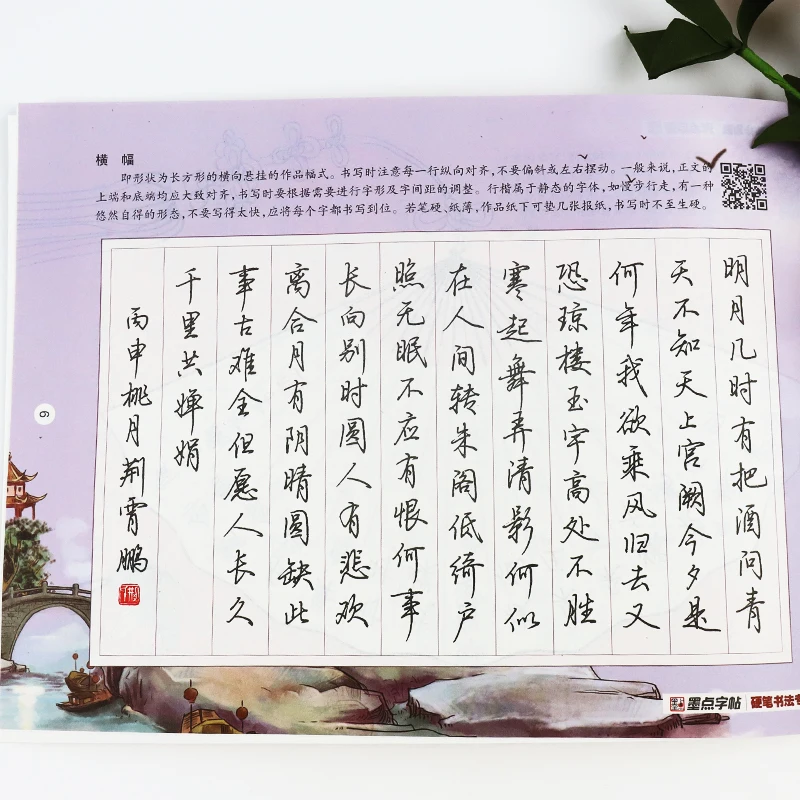 横 幅
即形状为长方形的横向悬挂的作品幅式。书写时注意每一行纵向对齐,不要偏斜或左右摆动。一般来说,正文的
上端和底端均应大致对齐,书写时要根据需要进行字形及字间距的调整。行楷属于静态的字体,如漫步行走,有一种
悠然自得的形态,不要写得太快,应将每个字都书写到位。若笔硬、纸薄,作品纸下可垫几张报纸,书写时不至生硬。
明月几时有把酒问青
天不知天上宫阙今夕是
何年我欲乘风归去又
恐琼楼玉宇高处不胜
寒起舞弄清影何似
在人间转朱阁低绮户
照无眠不应有恨何事
长向别时圆人有悲欢
离合月有阴晴圆缺此
事古难全但愿人长久
千里共婵娟
丙申桃月荆霄鹏
6
墨点字帖 硬笔书法专